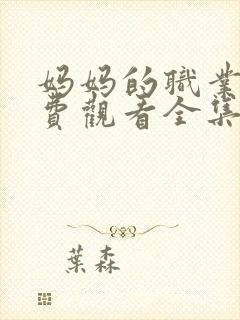 妈妈的職業
費觀看全集
葉森